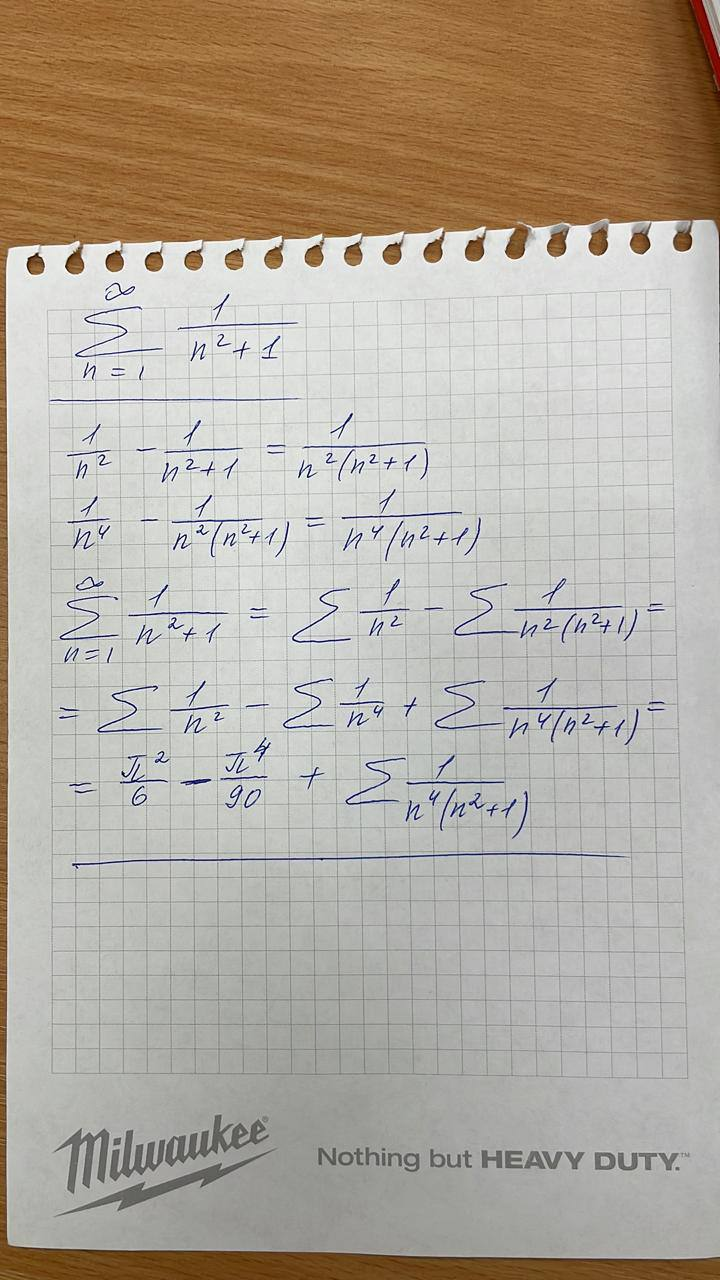 ∞
∑ 1/(n²+1)
n=1
1/n² − 1/(n²+1) = 1/(n²(n²+1))
1/n⁴ − 1/(n²(n²+1)) = 1/(n⁴(n²+1))
∞
∑ 1/(n²+1) = ∑ 1/n² − ∑ 1/(n²(n²+1)) =
n=1
= ∑ 1/n² − ∑ 1/n⁴ + ∑ 1/(n⁴(n²+1)) =
= π²/6 − π⁴/90 + ∑ 1/(n⁴(n²+1))
Milwaukee® Nothing but HEAVY DUTY.™